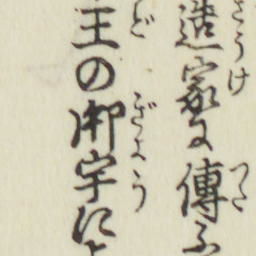 造家に傳ふ
王の御宇に